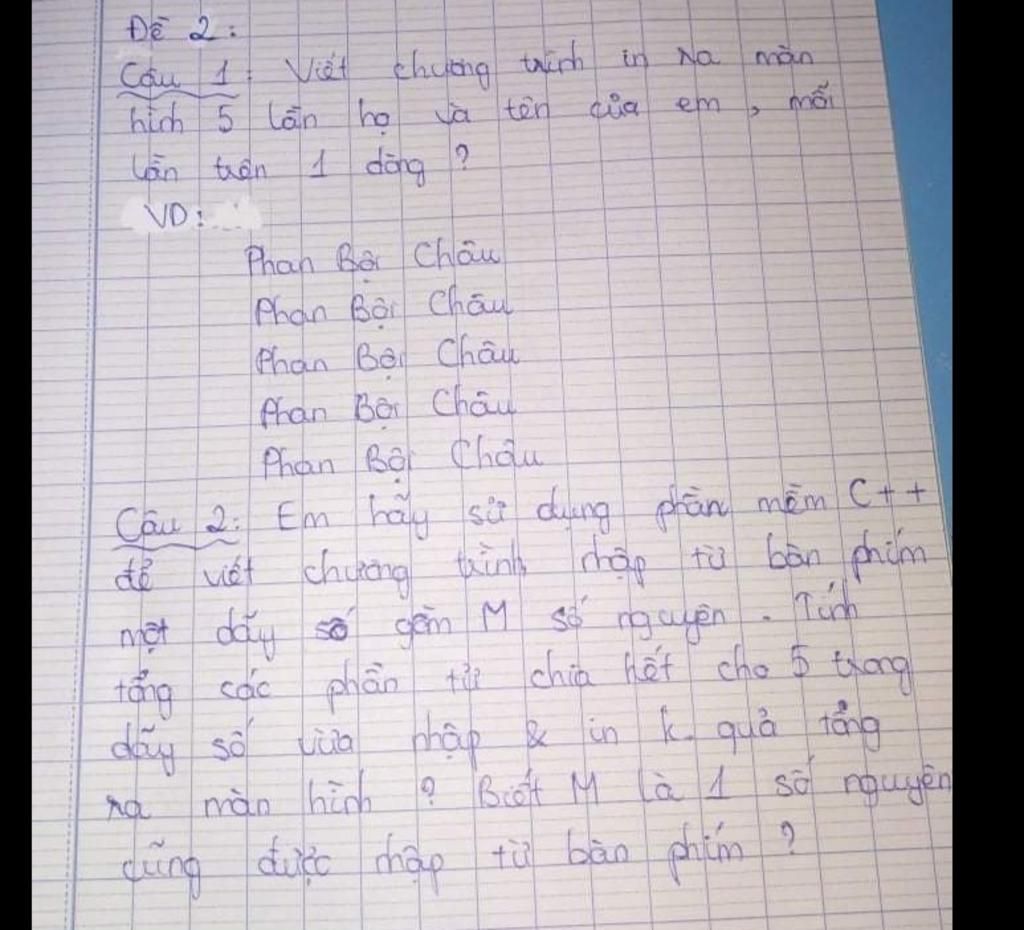 Đề 2:
Câu 1: Viết chương trình in ra màn
hình 5 lần họ và tên của em, mỗi
lần trên 1 dòng?
VD:
Phan Bội Châu
Phan Bội Châu
Phan Bội Châu
Phan Bội Châu
Phan Bội Châu
Câu 2: Em hãy sử dụng phần mềm C++
để viết chương trình nhập từ bàn phím
một dãy số gồm M số nguyên. Tính
tổng các phần tử chia hết cho 5 trong
dãy số vừa nhập & in k. quả tổng
ra màn hình? Biết M là 1 số nguyên
cũng được nhập từ bàn phím?